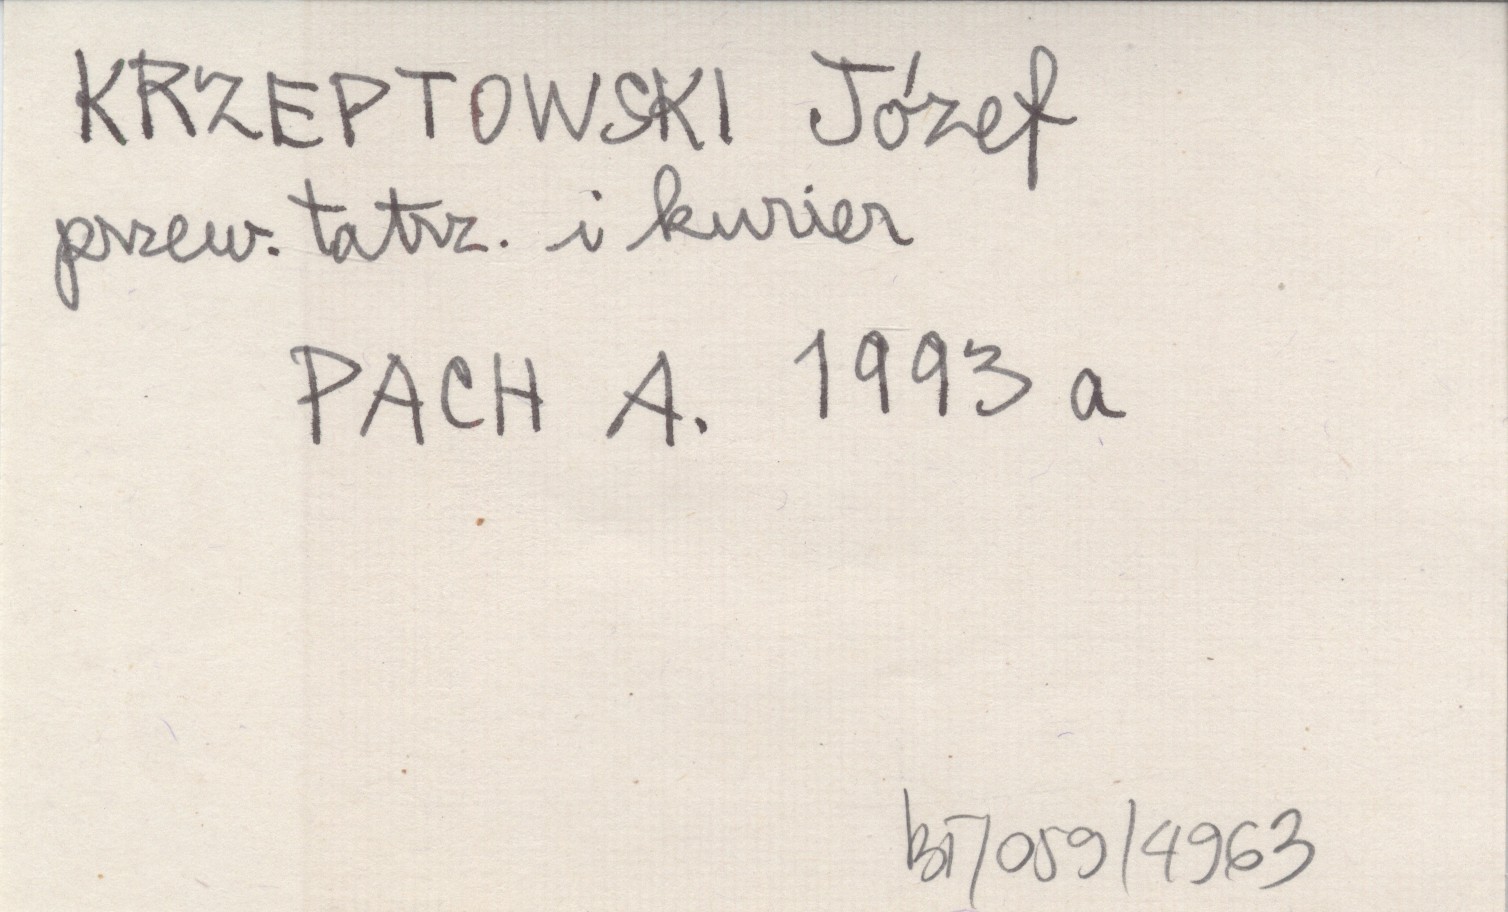 KRZEPTOWSKI Józef
przew. tatrz. i kurier
PACH A. 1993 a
BT/059/4963